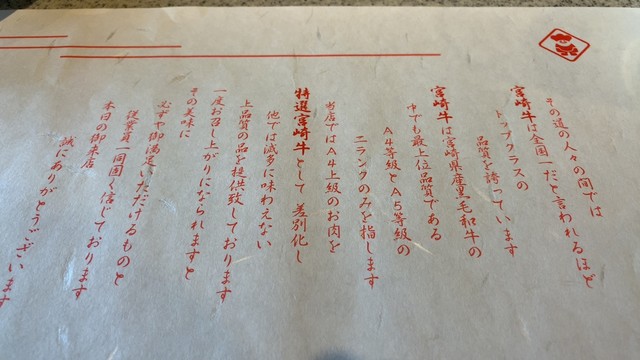 その道の人々の間では
宮崎牛は全国一だと言われるほど
トップクラスの
品質を誇っています
宮崎牛は宮崎県産黒毛和牛の
中でも最上位品質である
A4等級とA5等級の
二ランクのみを指します
当店ではA4上級のお肉を
特選宮崎牛として 差別化し
他では滅多に味わえない
上品質の品を提供致しております
一度お召し上がりになられますと
その美味に
必ずや御満足いただけるものと
従業員一同固く信じております
本日の御来店
誠にありがとうございます